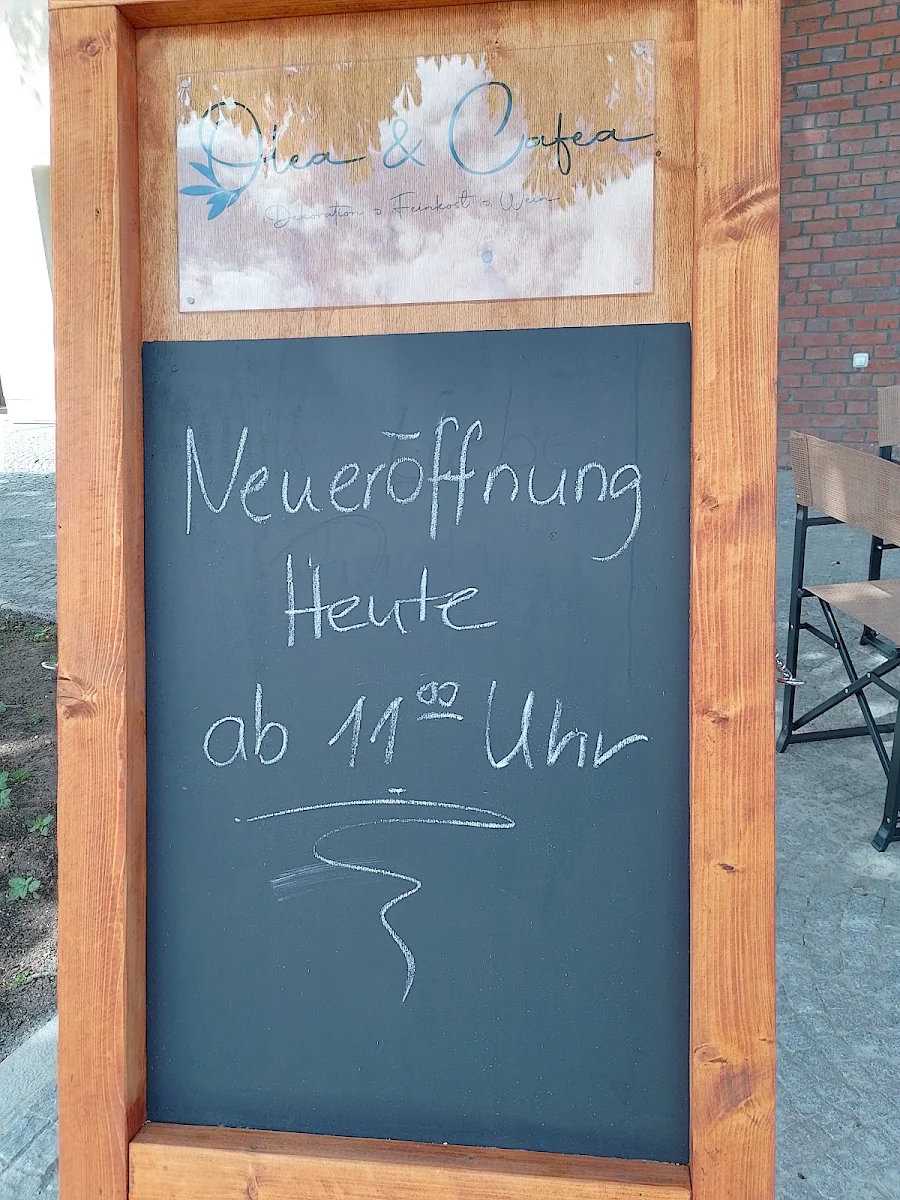 Olea & Cafea
Dekoration › Feinkost › Wein
Neueröffnung
Heute
ab 11⁰⁰ Uhr